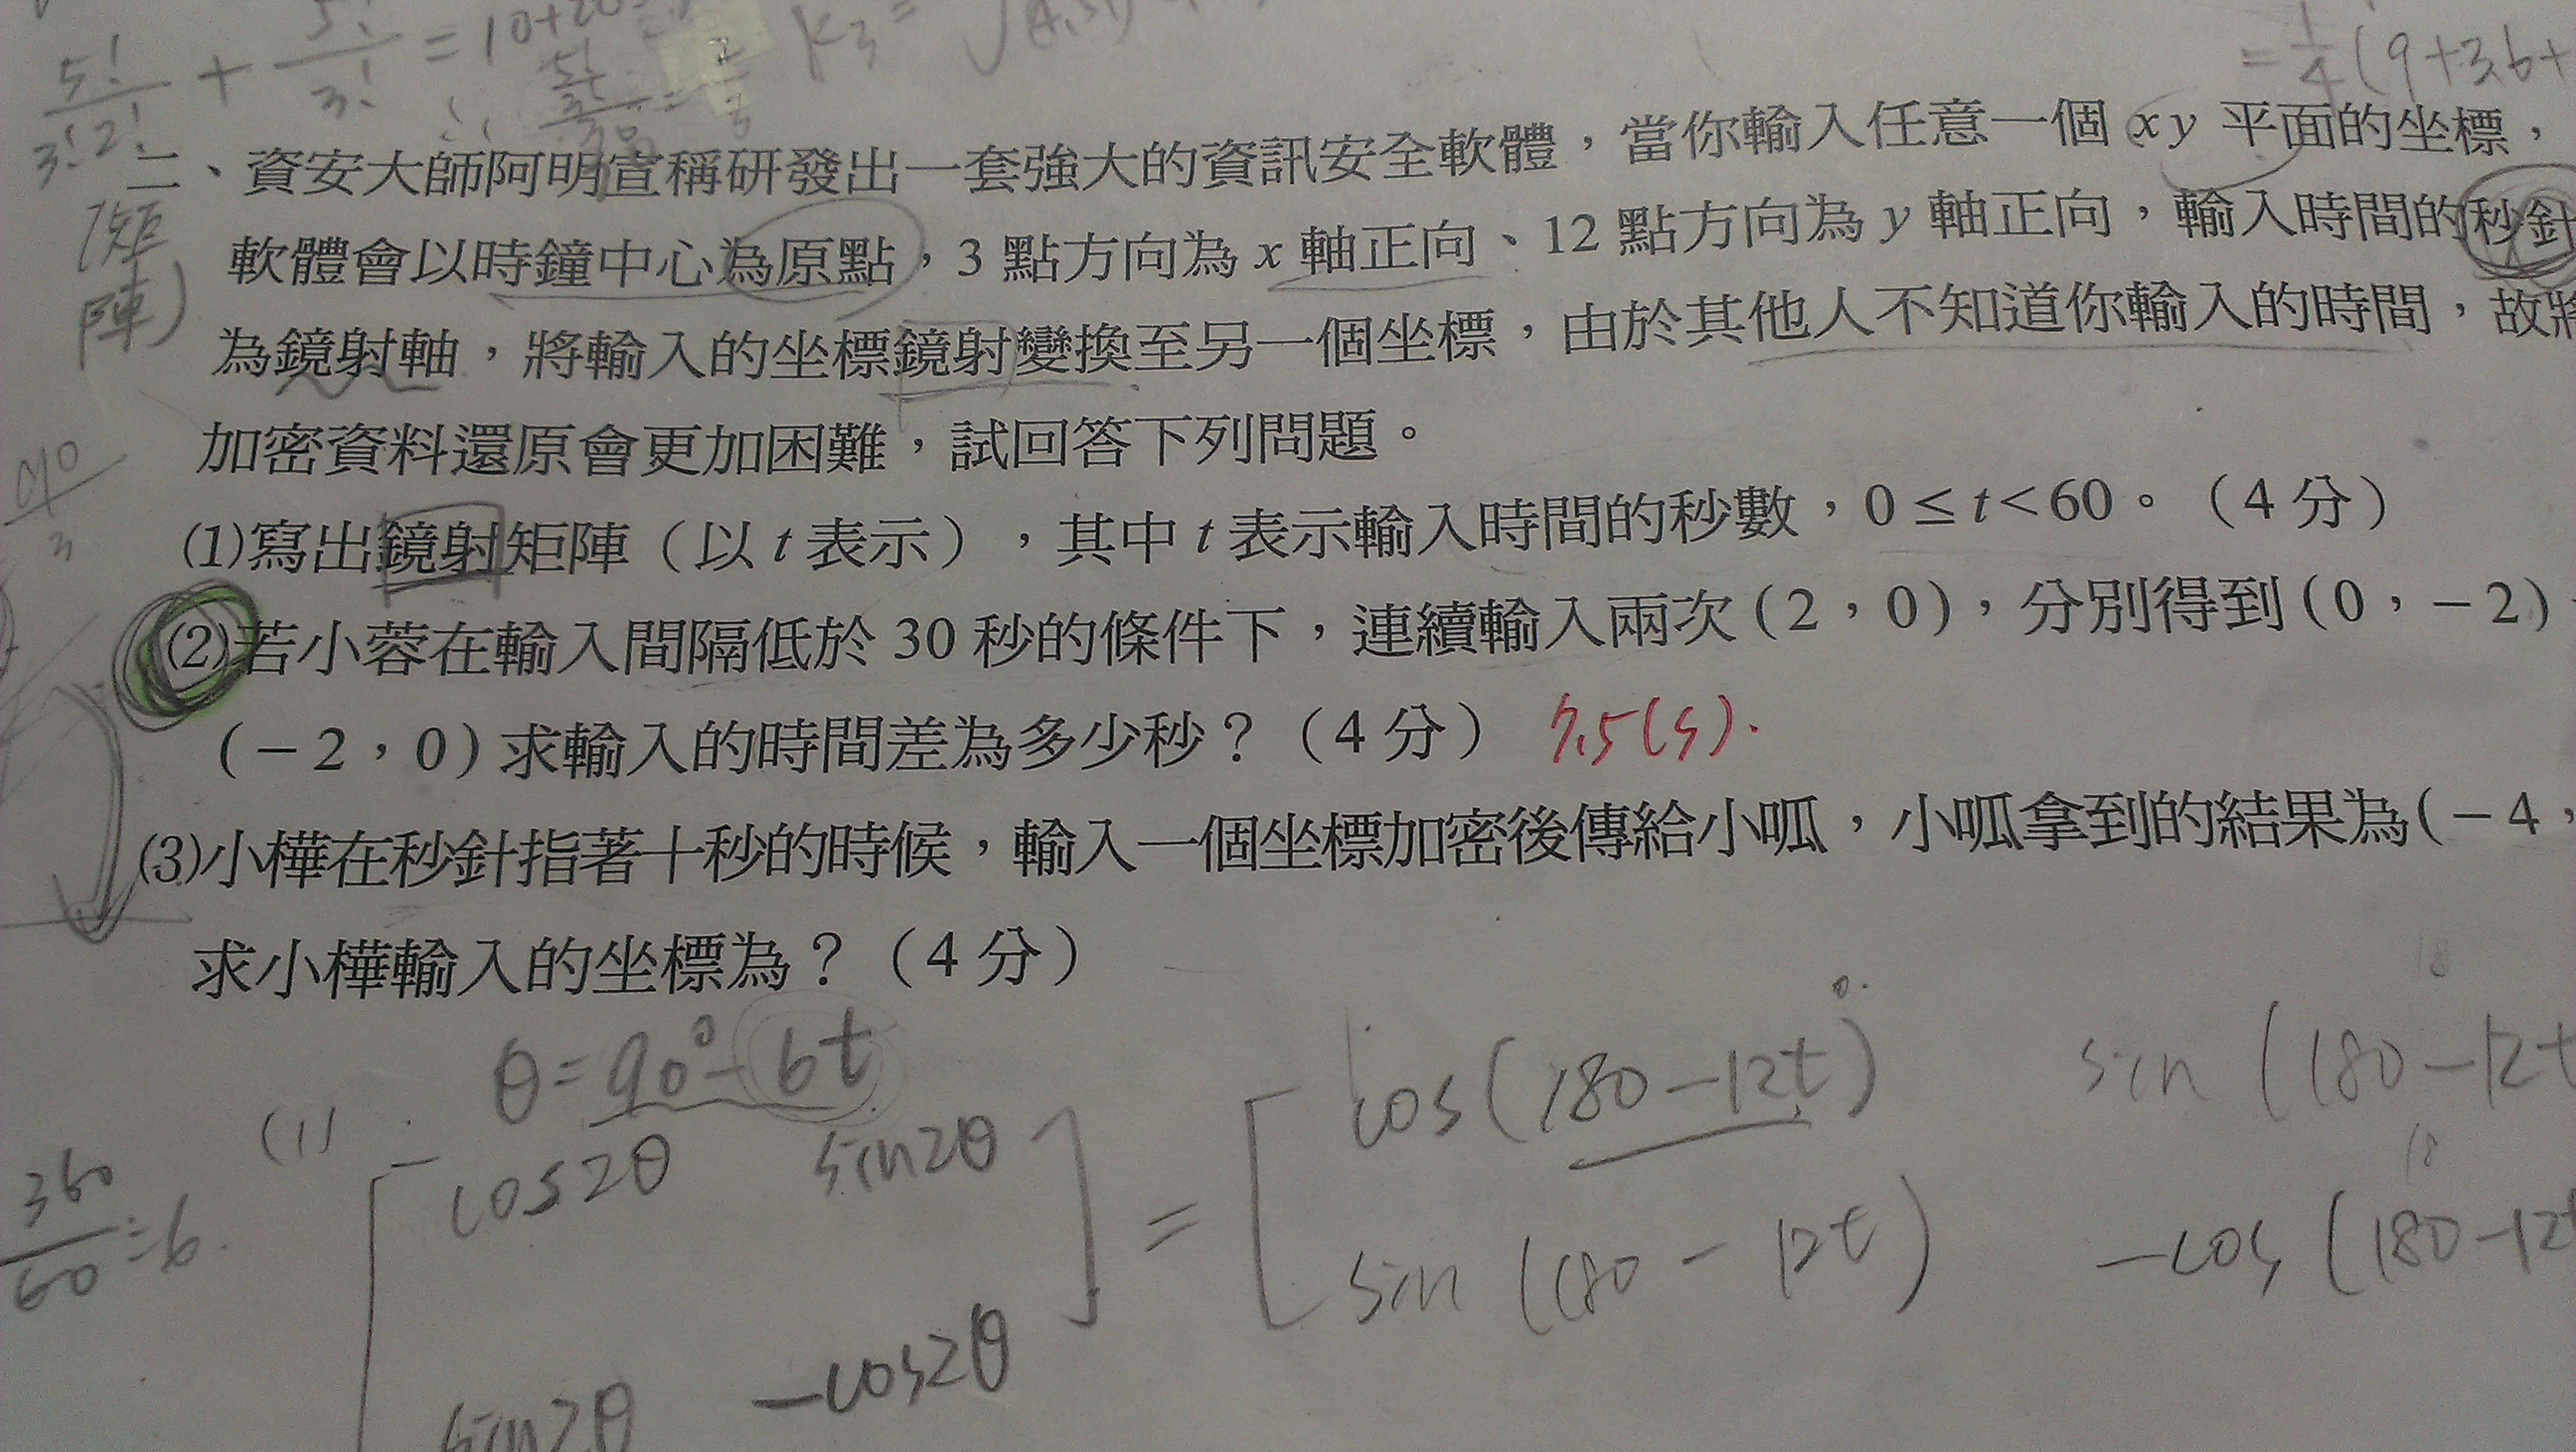 5!/3!2! + 5!/3! = 10+20
K3 =
= 1/4 (9+36+
二、資安大師阿明宣稱研發出一套強大的資訊安全軟體，當你輸入任意一個 xy 平面的坐標，
(矩陣)
軟體會以時鐘中心為原點，3 點方向為 x 軸正向、12 點方向為 y 軸正向，輸入時間的秒針
為鏡射軸，將輸入的坐標鏡射變換至另一個坐標，由於其他人不知道你輸入的時間，故將
加密資料還原會更加困難，試回答下列問題。
90/3
⑴寫出鏡射矩陣（以 t 表示），其中 t 表示輸入時間的秒數，0 ≤ t < 60。（4 分）
⑵若小蓉在輸入間隔低於 30 秒的條件下，連續輸入兩次 (2，0)，分別得到 (0，－2)
(－2，0) 求輸入的時間差為多少秒？（4 分） 7.5(s).
⑶小樺在秒針指著十秒的時候，輸入一個坐標加密後傳給小呱，小呱拿到的結果為 (－4，
求小樺輸入的坐標為？（4 分）
θ = 90° - 6t
(1) [cos2θ sin2θ = [cos(180-12t) sin(180-12t
360/60 = 6.
sin2θ -cos2θ] sin(180-12t) -cos(180-12t